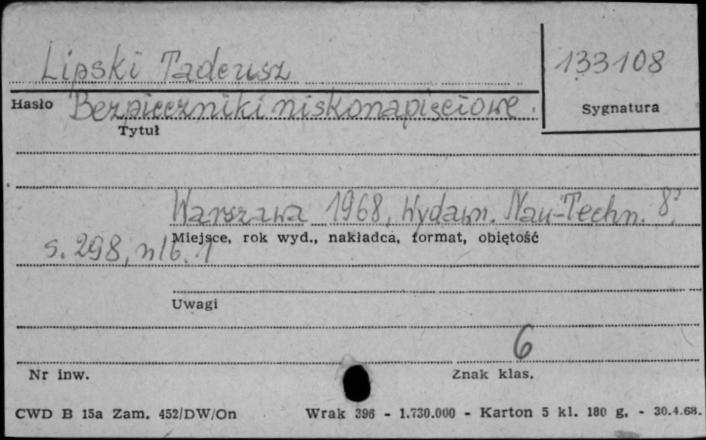 Lipski Tadeusz
133108
Hasło Bezpieczniki niskonapięciowe.
Sygnatura
Tytuł
Warszawa 1968, Wydawn. Nau-Techn. 8°,
Miejsce, rok wyd., nakładca, format, objętość
s. 298, nlb. 1
Uwagi
6
Nr inw.
Znak klas.
CWD B 15a Zam. 452/DW/On Wrak 396 - 1.730.000 - Karton 5 kl. 180 g. - 30.4.68.